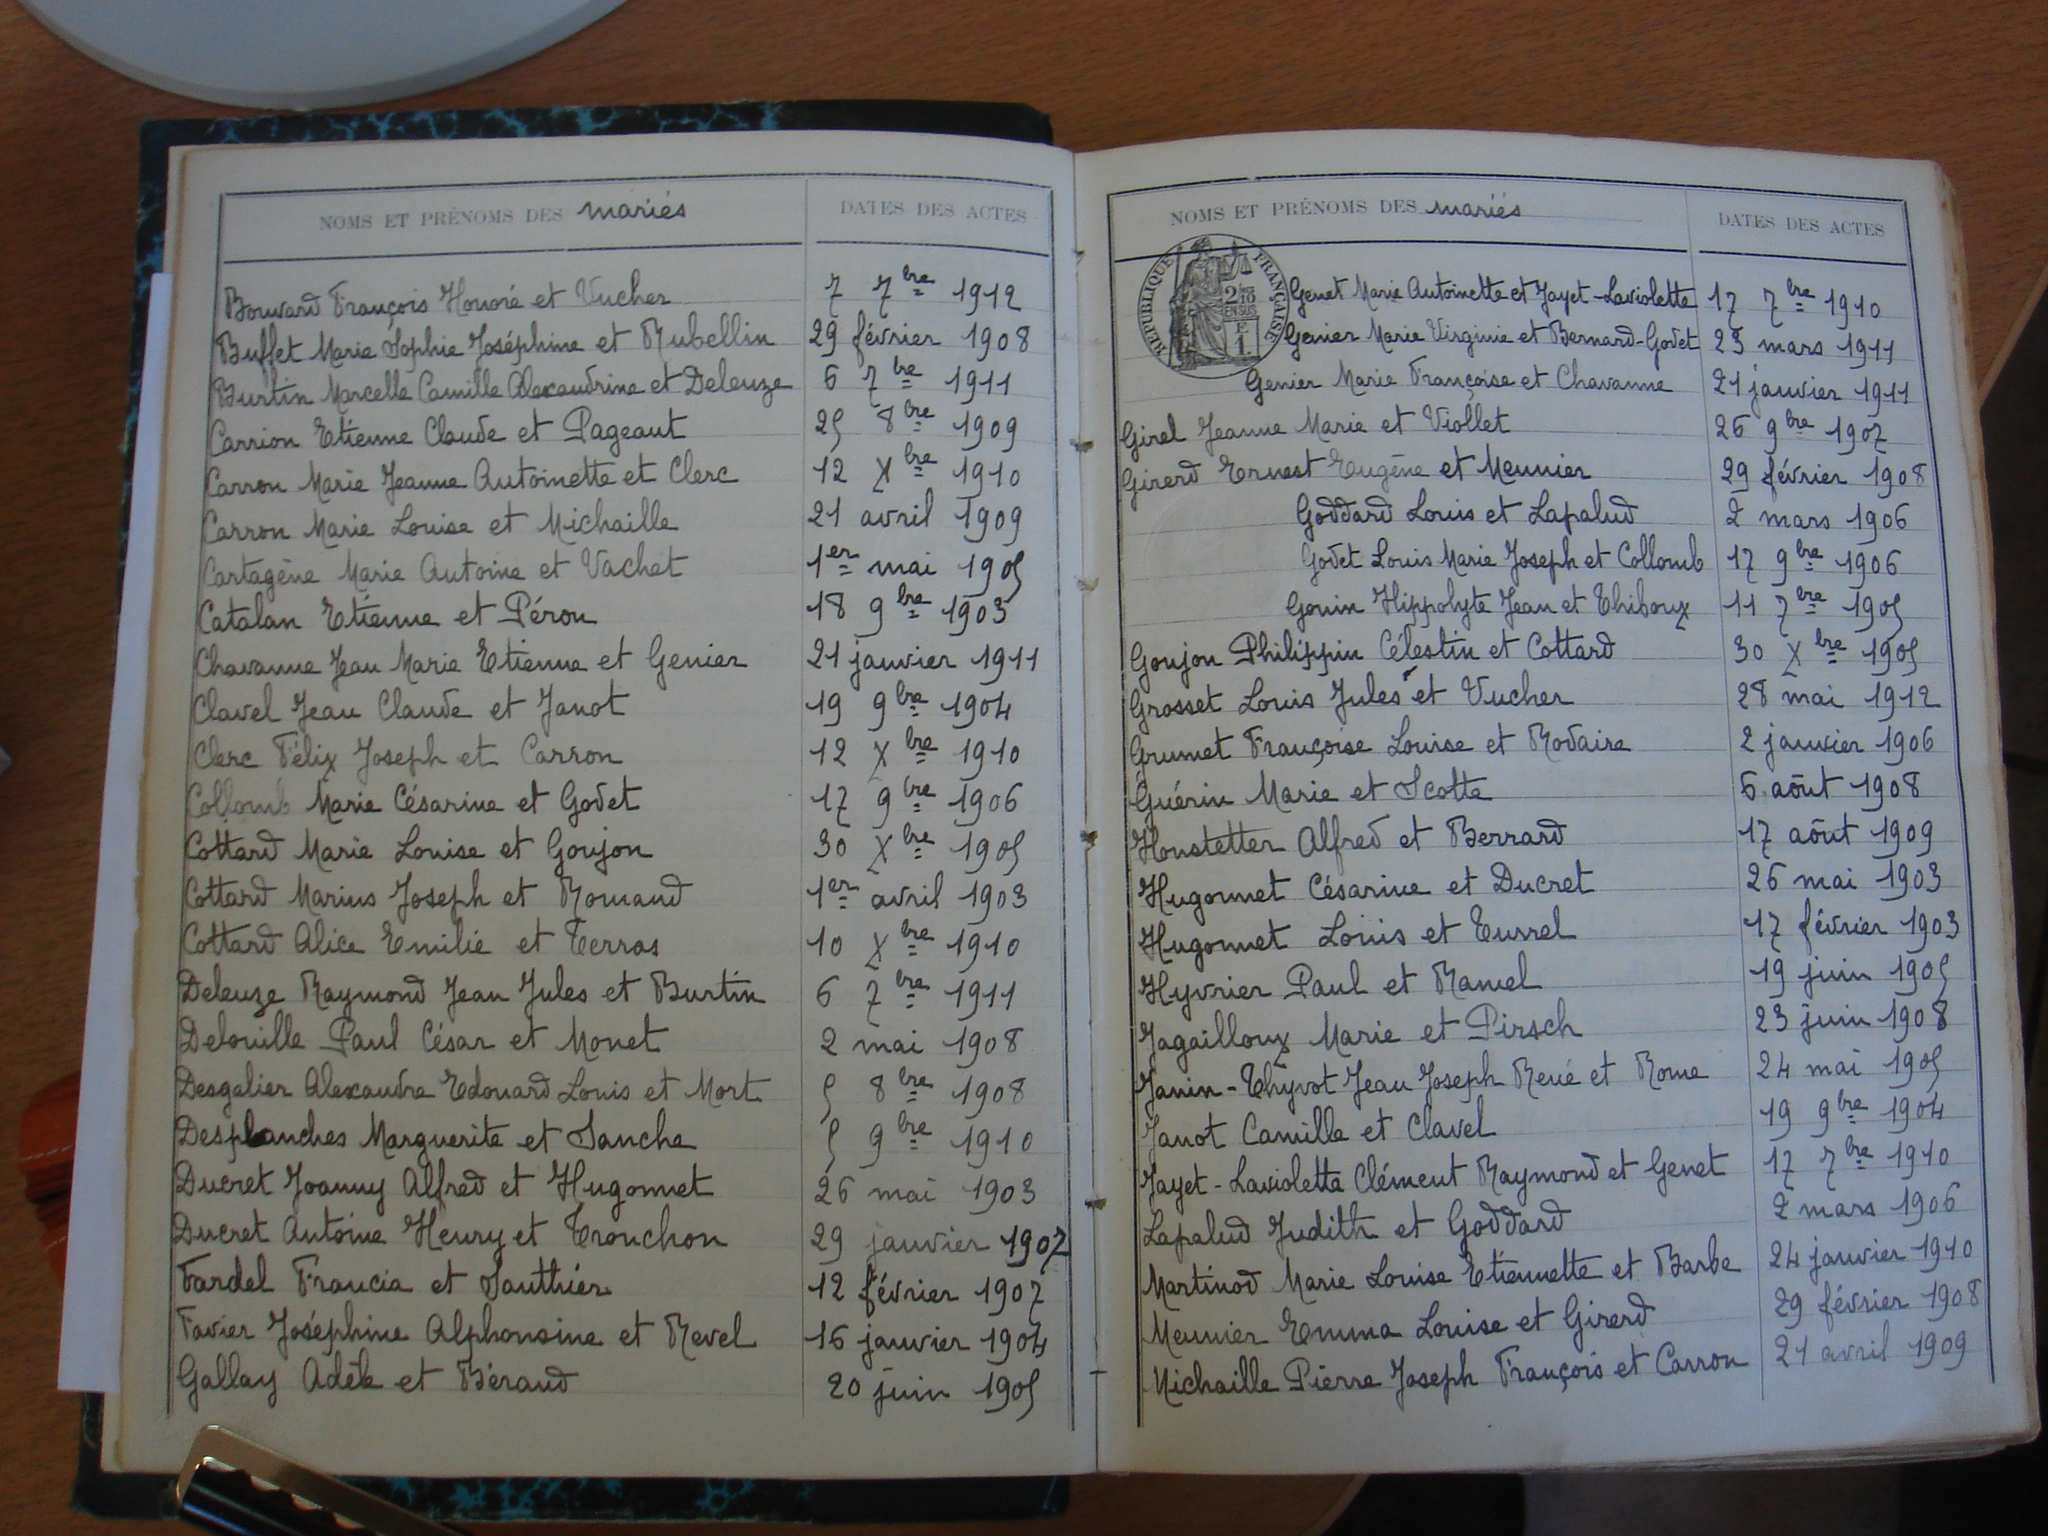 NOMS ET PRÉNOMS DES mariés DATES DES ACTES
Bouvard François Honoré et Vucher 7 7bre 1912
Buffet Marie Sophie Joséphine et Rubellin 29 février 1908
Burtin Marcelle Camille Alexandrine et Deleuze 6 7bre 1911
Carrion Etienne Claude et Pageaut 25 8bre 1909
Carron Marie Jeanne Antoinette et Clerc 12 Xbre 1910
Carron Marie Louise et Michaille 21 avril 1909
Cartagène Marie Antoine et Vachet 1er mai 1905
Catalan Etienne et Péron 18 9bre 1903
Chavanne Jean Marie Etienne et Genier 21 janvier 1911
Clavel Jean Claude et Janot 19 9bre 1904
Clerc Félix Joseph et Carron 12 Xbre 1910
Collomb Marie Césarine et Godet 17 9bre 1906
Cottard Marie Louise et Goujon 30 Xbre 1905
Cottard Marius Joseph et Romand 1er avril 1903
Cottard Alice Emilie et Terras 10 Xbre 1910
Deleuze Raymond Jean Jules et Burtin 6 7bre 1911
Delouille Paul César et Monet 2 mai 1908
Desgalier Alexandre Edouard Louis et Mort 5 8bre 1908
Desplanches Marguerite et Sanche 5 9bre 1910
Ducret Joanny Alfred et Hugonnet 26 mai 1903
Ducret Antoine Henry et Tronchon 29 janvier 1907
Fardel Francia et Sauthier 12 février 1907
Favier Joséphine Alphonsine et Revel 16 janvier 1904
Gallay Adèle et Béraud 20 juin 1905
NOMS ET PRÉNOMS DES mariés DATES DES ACTES
RÉPUBLIQUE FRANÇAISE
2/10 EN SUS
F.
1.
Genet Marie Antoinette et Jayet-Laviolette 17 7bre 1910
Genier Marie Virginie et Bernard-Godet 23 mars 1911
Genier Marie Françoise et Chavanne 21 janvier 1911
Girel Jeanne Marie et Viollet 26 9bre 1907
Girerd Ernest Eugène et Meunier 29 février 1908
Goddard Louis et Lapalud 2 mars 1906
Godet Louis Marie Joseph et Collomb 17 9bre 1906
Gouin Hippolyte Jean et Thiboux 11 7bre 1905
Goujon Philippin Célestin et Cottard 30 Xbre 1905
Grosset Louis Jules et Vucher 28 mai 1912
Grumet Françoise Louise et Rodaire 2 janvier 1906
Guérin Marie et Scotte 6 août 1908
Honstetter Alfred et Berrard 17 août 1909
Hugonnet Césarine et Ducret 26 mai 1903
Hugonnet Louis et Turrel 17 février 1903
Hyvrier Paul et Ramel 19 juin 1905
Jagailloux Marie et Pirsch 23 juin 1908
Janin-Thyvot Jean Joseph René et Rome 24 mai 1905
Janot Camille et Clavel 19 9bre 1904
Jayet-Laviolette Clément Raymond et Genet 17 7bre 1910
Lapalud Judith et Goddard 2 mars 1906
Martinod Marie Louise Etiennette et Barbe 24 janvier 1910
Meunier Emma Louise et Girerd 29 février 1908
Michaille Pierre Joseph François et Carron 21 avril 1909